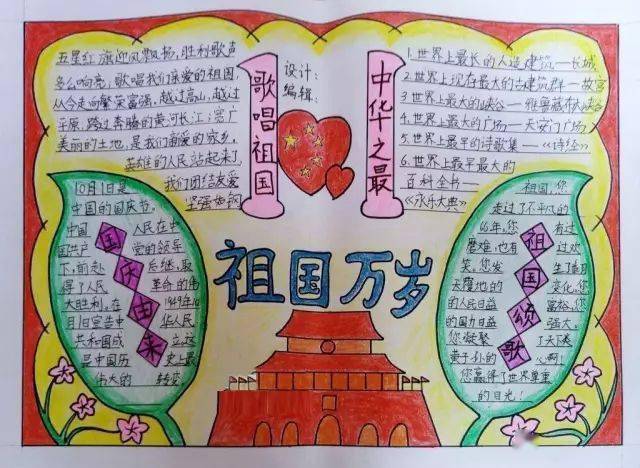 五星红旗迎风飘扬,胜利歌声
多么响亮,歌唱我们亲爱的祖国,
从今走向繁荣富强,越过高山,越过
平原,跨过奔腾的黄河长江;宽广
美丽的土地,是我们亲爱的家乡,
英雄的人民站起来了
我们团结友爱
坚强如钢
歌唱祖国
设计:
编辑:
中华之最
1.世界上最长的人造建筑—长城
2.世界上现存最大的古建筑群—故宫
3.世界上最大的峡谷—雅鲁藏布大峡谷
4.世界上最大的广场—天安门广场
5.世界上最早的诗歌集—《诗经》
6.世界上最早最大的
百科全书—
《永乐大典》
祖国万岁
国庆由来
10月1日是
中国的国庆节。
中国 人民在中
国共产 党的领导
下,前赴 后继,取
得了人民 革命的伟
大胜利。在 1949年10
月1日宣告中 华人民
共和国成 立,这
是中国历 史上最
伟大的 转变
祖国颂歌
祖国,您
走过了不平凡的
66年,您 有过
磨难,也有 过欢
笑。您发 生了翻
天覆地的 变化。您
的人民日益 富裕,您
的国力日益 强大。
您凝聚 了天下炎
黄子孙的 心啊!
您赢得了世界尊重
的目光!